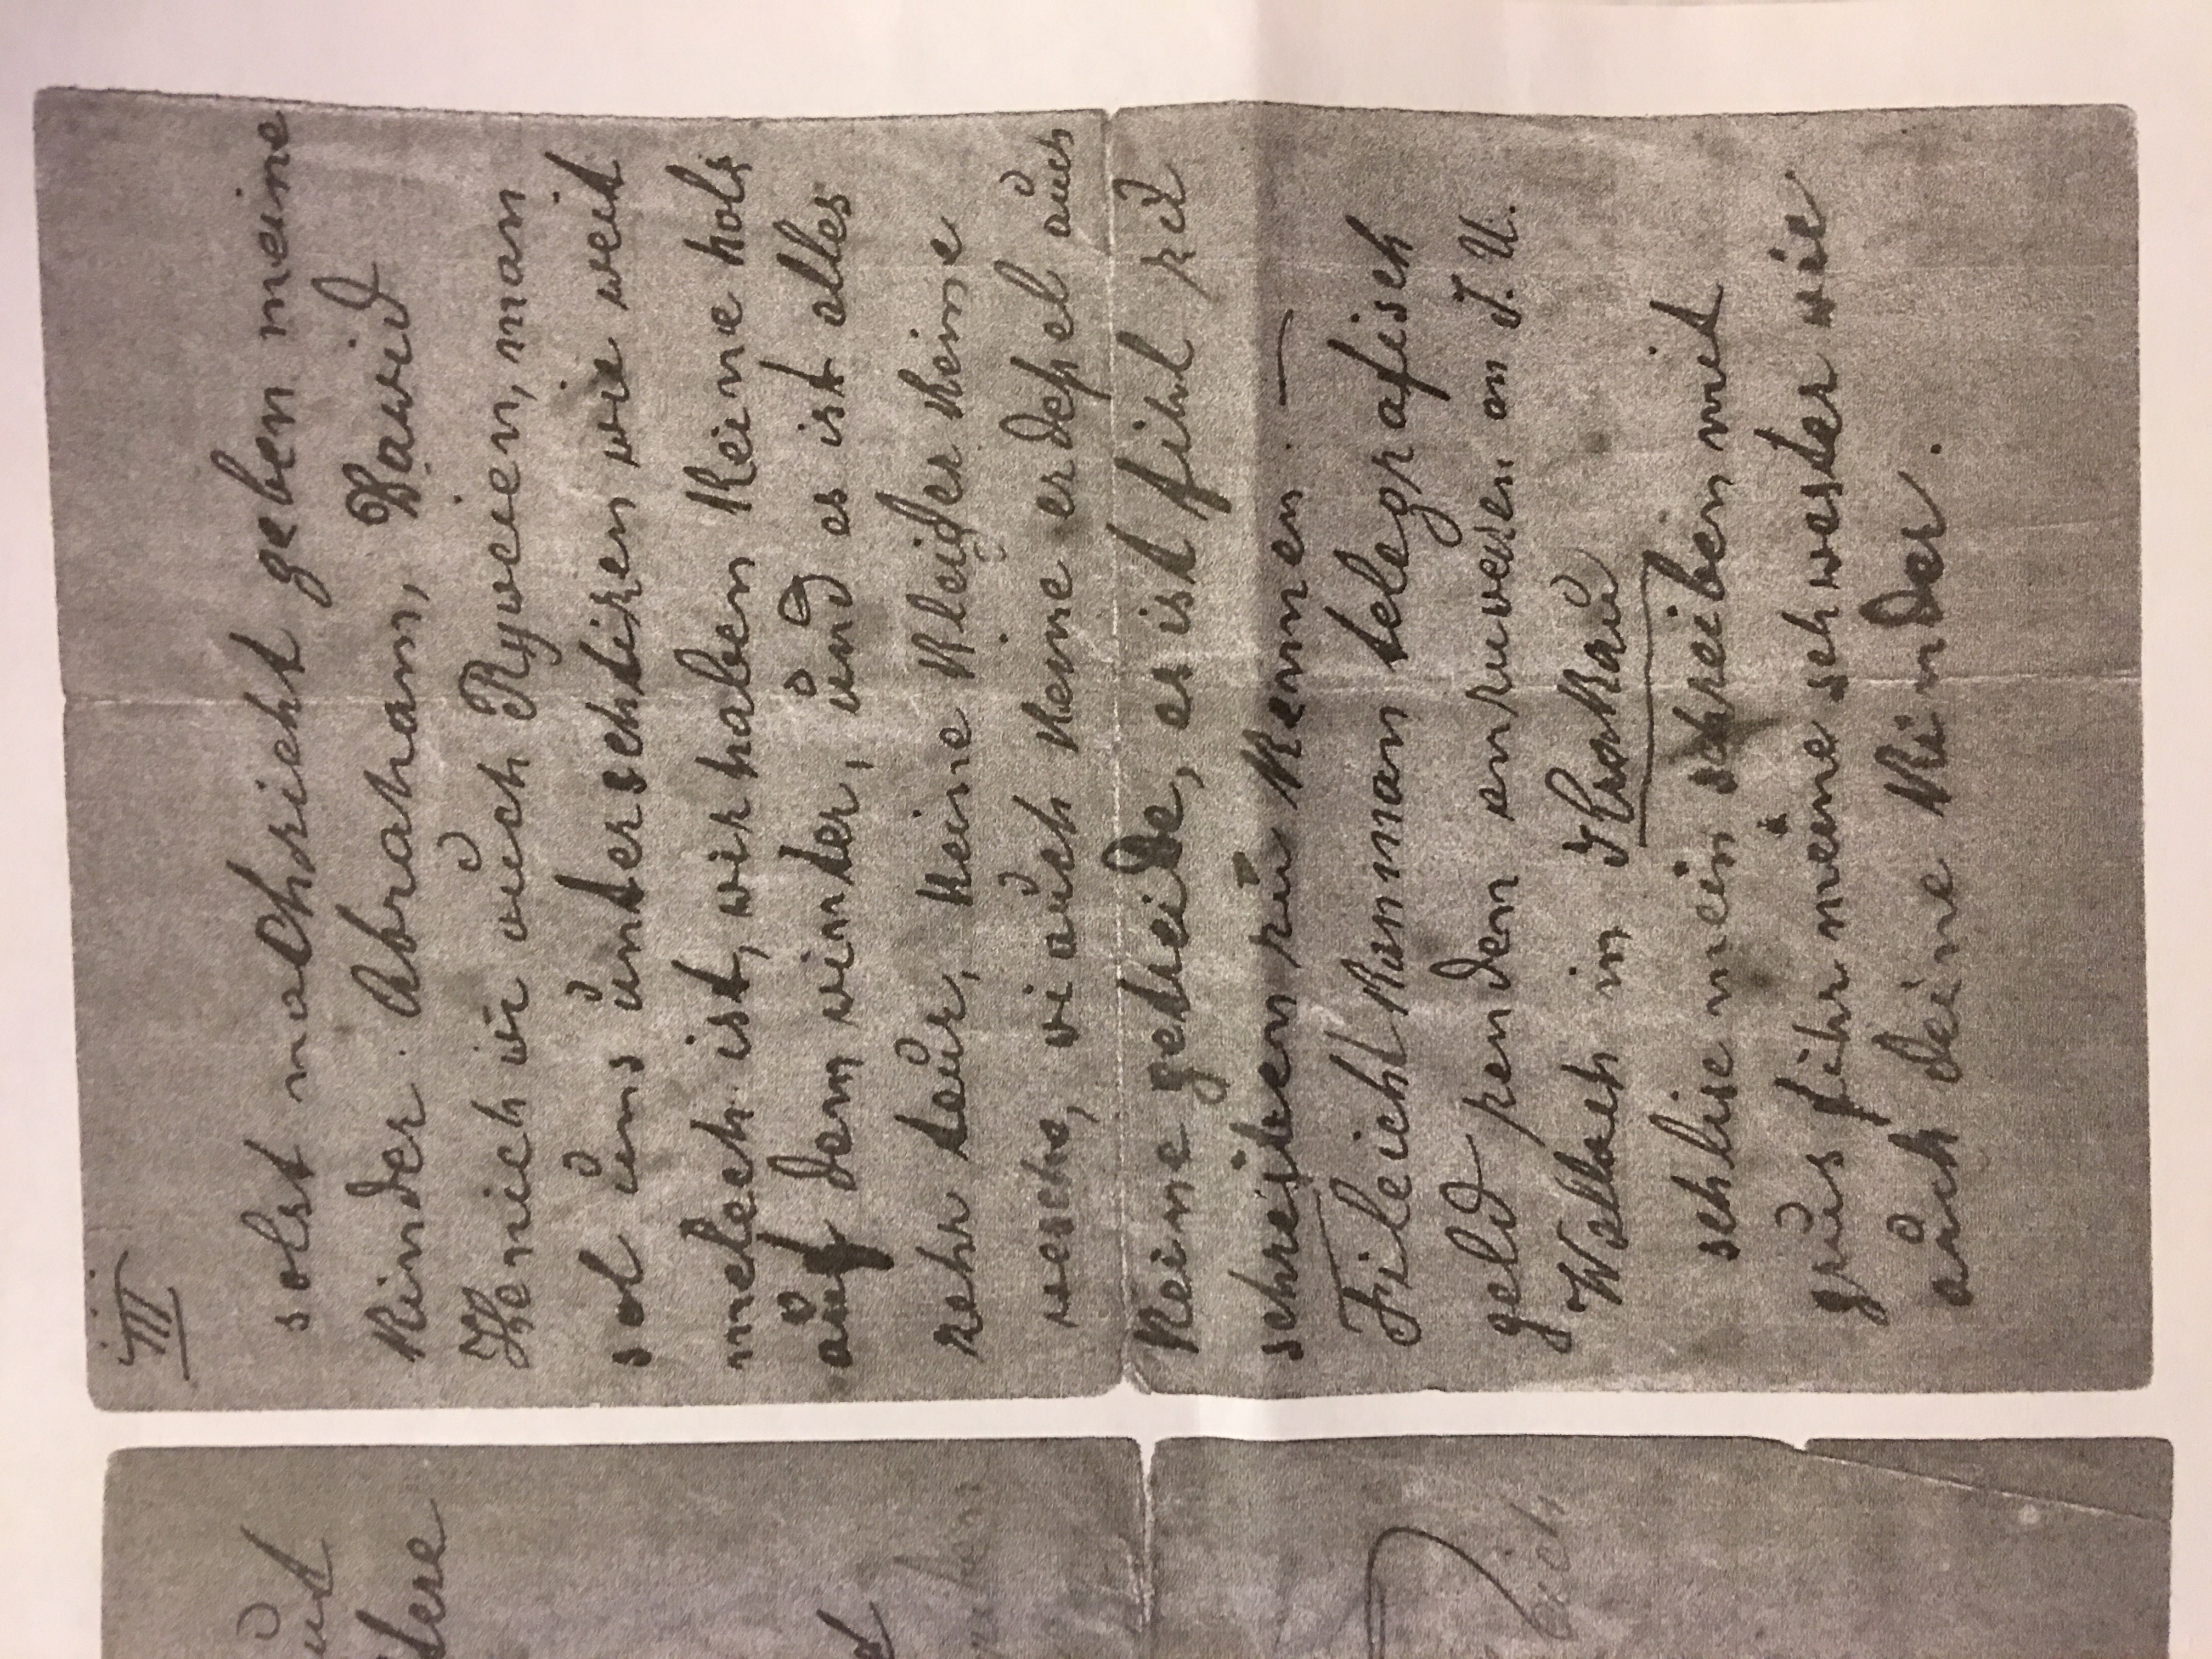 III
solst nachricht geben meine
kinder. Abraham, Dawid
Henich wi auch Ryweien, man
sol uns unterschtizen wie weit
melech ist, wir haben keine hols
auf dem winter, und es ist alles
zehr teur, keine kleider keine
wesche, wi auch keine erdepel auch
keine getreide, es ist fihl zü
schreiben zu kennen. —
Fileicht kan man telegrafisch
geld zenden an
Wallach in Krakau
schlise mein schreiben mit
grus fihr meine schwester wie
auch deine kinder.